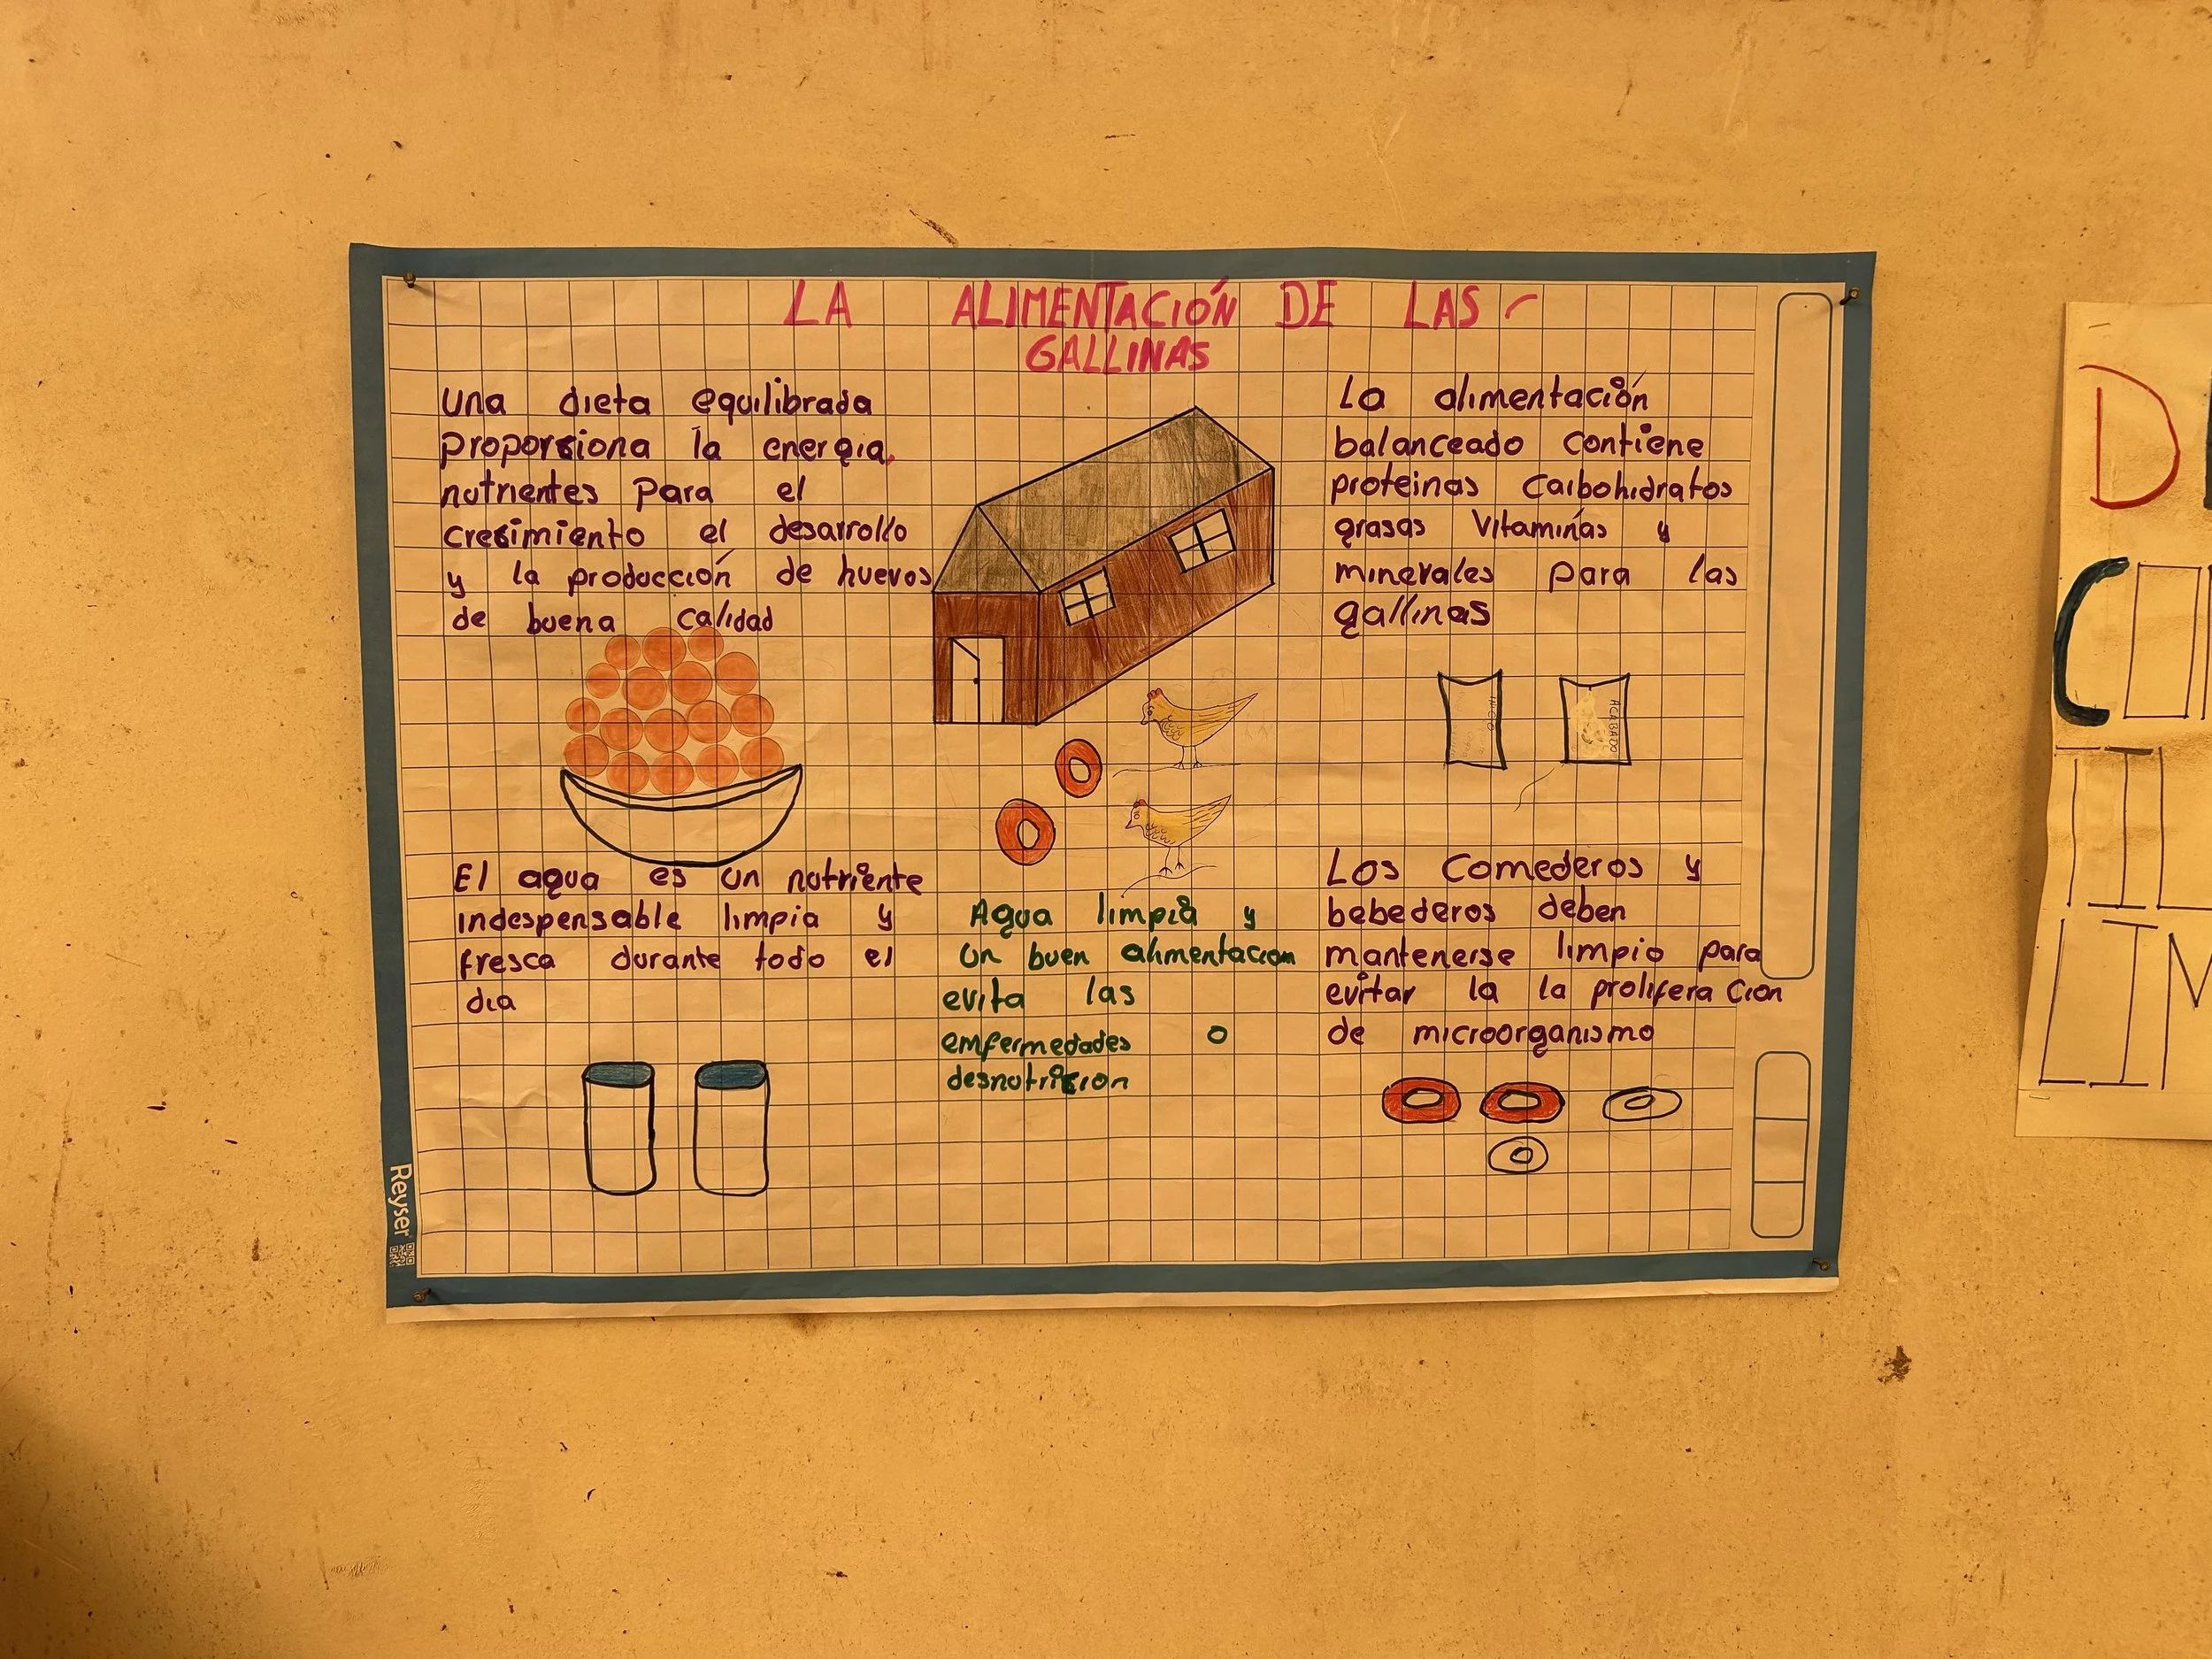 LA ALIMENTACIÓN DE LAS
GALLINAS
una dieta equilibrada
proporsiona la energia,
nutrientes para el
cresimiento el desarrollo
y la producción de huevos
de buena calidad
La alimentación
balanceado contiene
proteinas carbohidratos
grasas vitaminas y
minerales para las
gallinas
INICIO
ACABADO
El agua es un nutriente
indespensable limpia y
fresca durante todo el
dia
Agua limpia y
un buen alimentacion
evita las
emfermedades o
desnutricion
Los comederos y
bebederos deben
mantenerse limpio para
evitar la la proliferacion
de microorganismo
Reyser
D
C